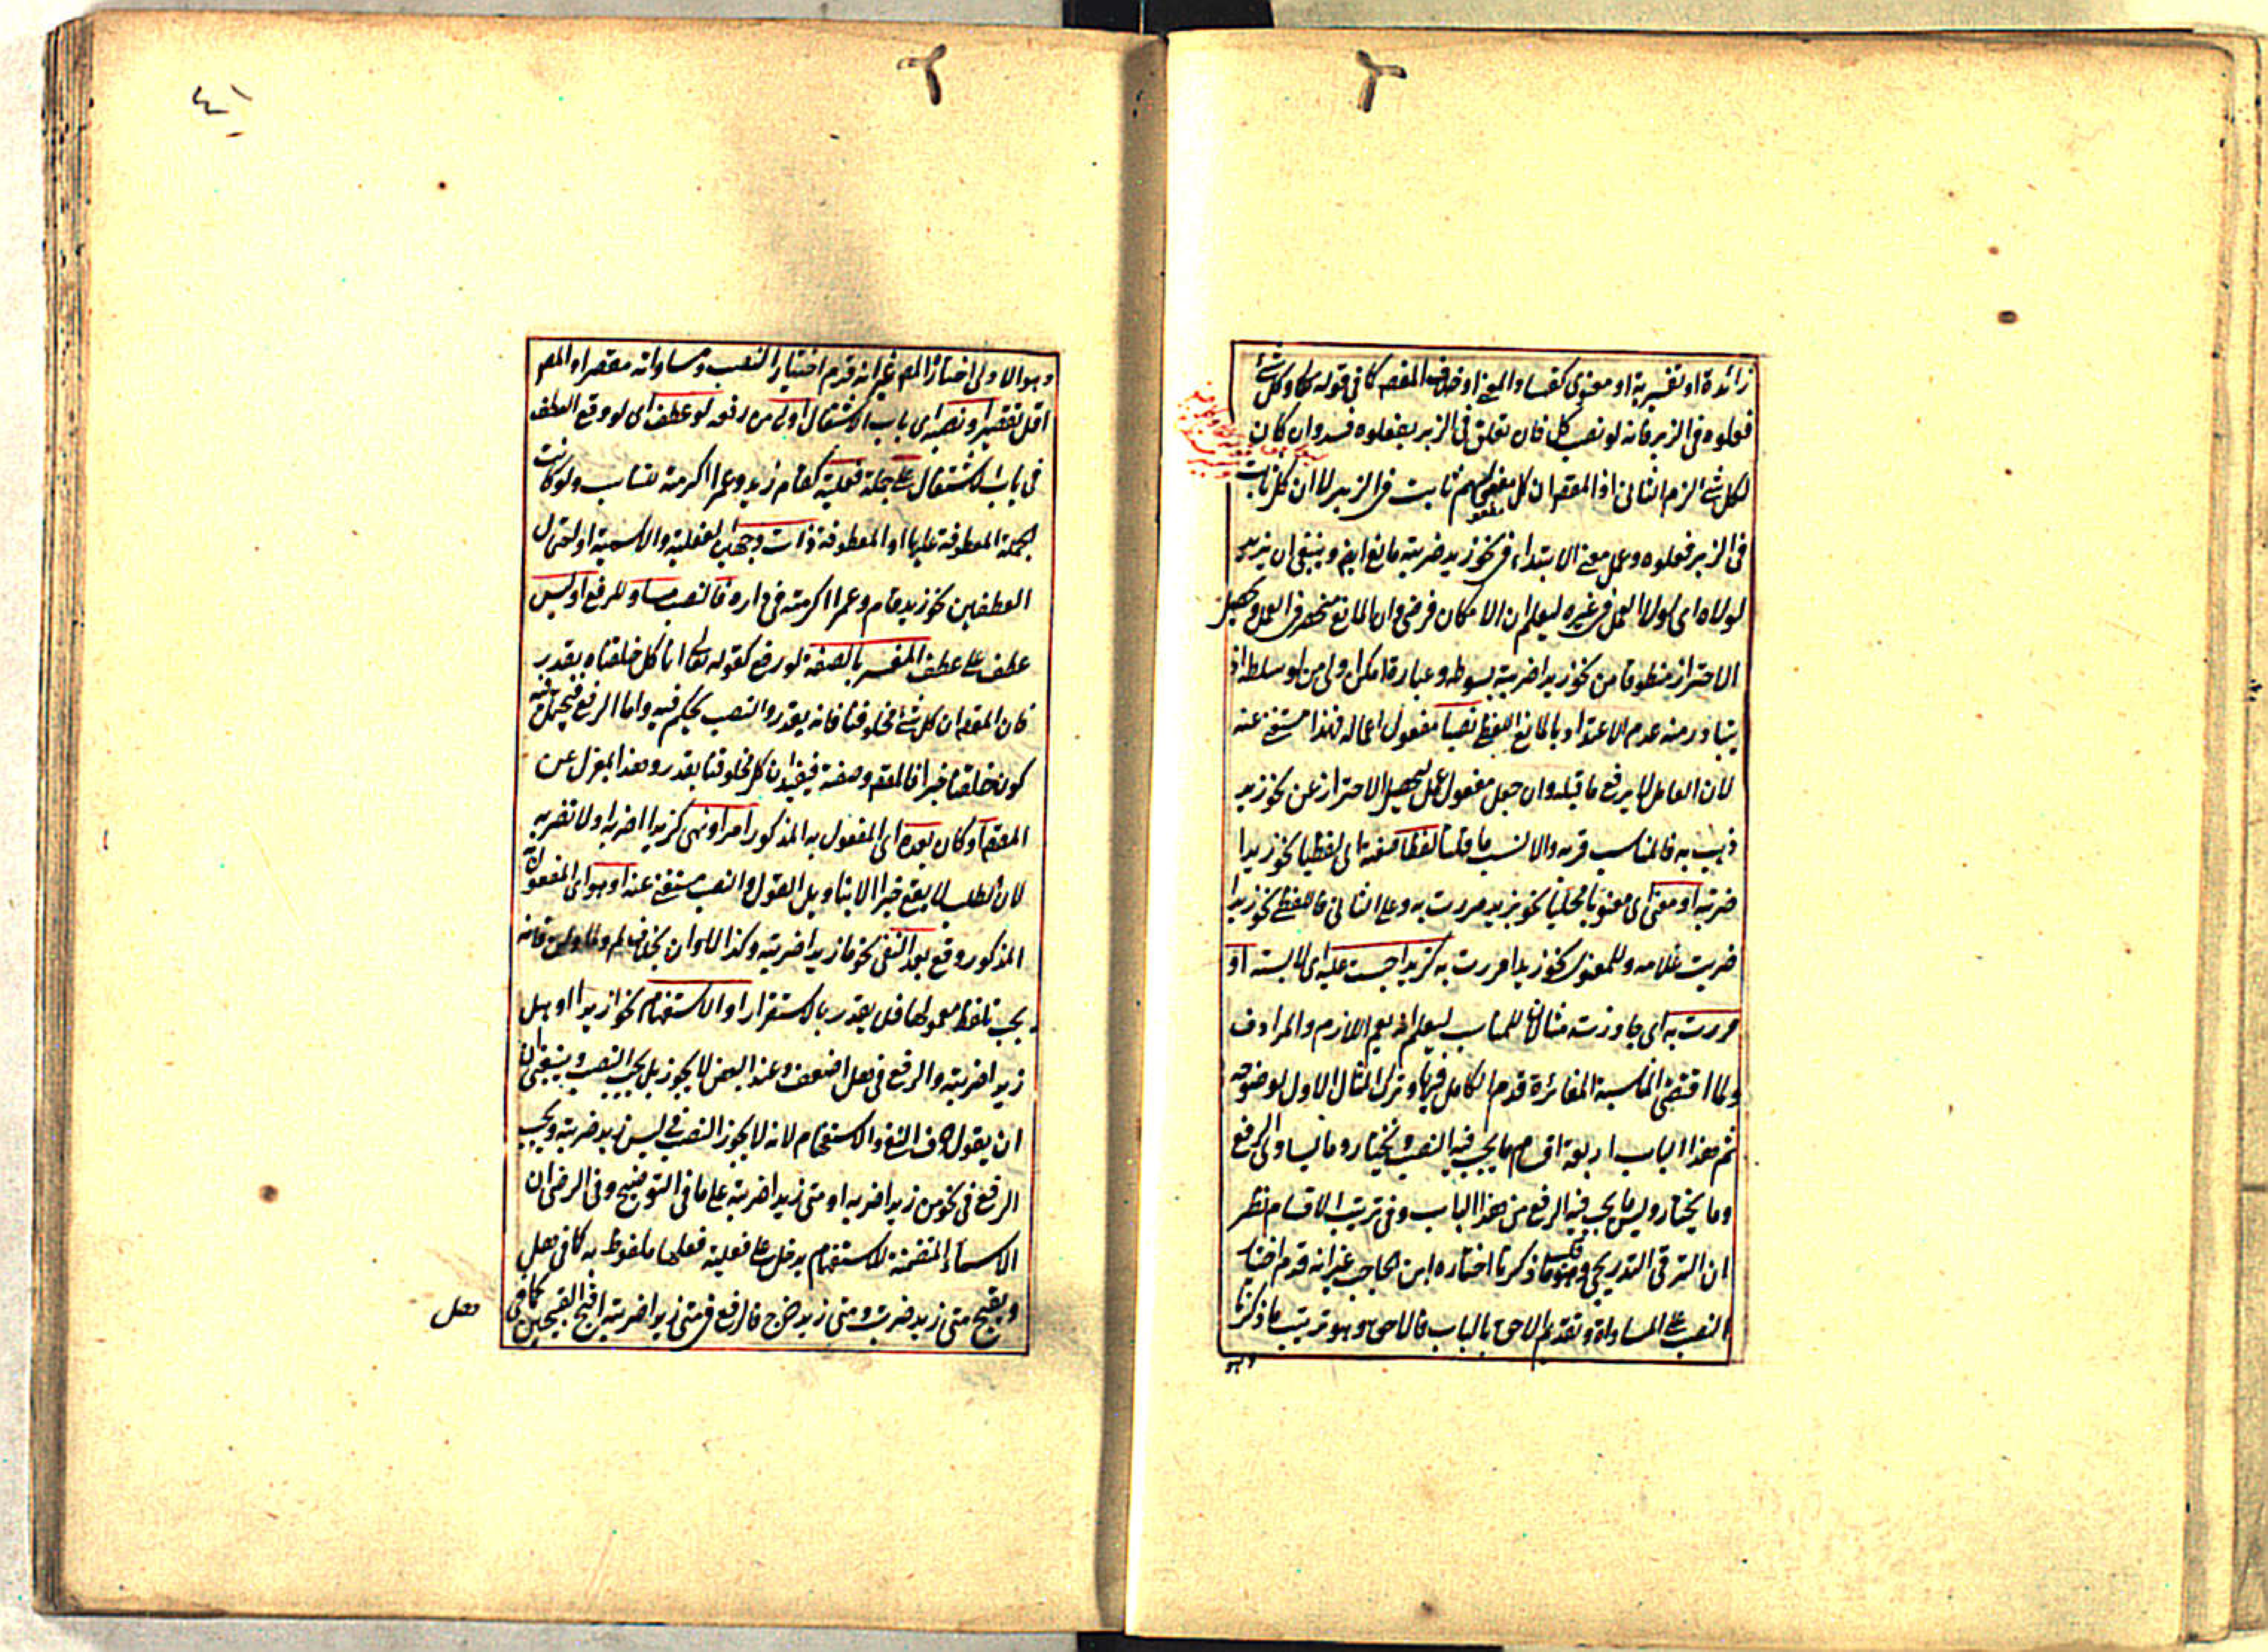 زائدة او تفسيرية او معنوى كفساد المعنى او خلاف المقصد كما فى قوله تعالى وكل شئ
فعلوه فى الزبر فانه لو نصب كل فان تعلق فى الزبر بفعلوه فسد وان كان
لكل شئ الزم الثانى اذ المقصد ان كل مفعول لهم ثابت فى الزبر لا ان كل ثابت
فى الزبر فعلوه وعمل معنى الابتداء فى نحو زيد ضربته مانع ايضا وينبغى ان يزيد
لولاه اى لولا العمل فى غيره ليعلم ان الامكان فرضى وان المانع منحصر فى العمل ويحصل
الاحتراز منطوقا من نحو زيدا ضربته بسوطه وعبارة امكن اولى من لو سلطه اذ
يتبادر منه عدم الاعتداد بالمانع اللفظى نصبا مفعول اعماله فهذا مستغنى عنه
لان العامل لا يرفع ما قبله وان جعل مفعول عمل ليحصل الاحتراز عن نحو زيد
ذهب به فالمناسب قربه والانسب ما قلنا لفظا صفته اى لفظيا نحو زيدا
ضربته او معنى اى معنويا محليا نحو بزيد مررت به وعلى الثانى فاللفظى نحو زيدا
ضربت غلامه والمعنوى نحو زيدا مررت به كزيدا جست عليه اى لابسته او
مررت به اى جاوزته مثالان للمناسب ليعلم انه يعم اللازم والمرادف
ولما اقتضى المناسبة المغائرة قدم الكامل فيها وترك المثال الاول لوضوحه
ثم هذا الباب اربعة اقسام ما يجب فيه النصب ويختار وما يساوى الرفع
وما يختار وليس ما يجب فيه الرفع من هذا الباب وفى ترتيب الاقسام نظر
ان الترقى التدريجى وهو ما ذكرنا اختاره ابن الحاجب غير انه قدم اختيار
النصب على المساواة وتقديم الاحق بالباب فالاحق وهو ترتيب ما ذكرنا
وهو
وهو الاولى اختاره المص غير انه قدم اختيار النصب ومساواته مقتصرا والمص
اقل تقصيرا ونصبه اى باب الاشتغال اولى من رفعه لو عطف اى لو وقع العطف
فى باب الاشتغال على جملة فعلية كقام زيد وعمرا اكرمته لتناسب ولو كانت
الجملة المعطوفة عليها او المعطوفة ذات وجهين الفعلية والاسمية او احتمال
العطفين نحو زيد قام وعمرا اكرمته فى داره فالنصب مساو للرفع او ليس
عطف على عطف المفسر بالصفة لو رفع كقوله تعالى انا كل خلقناه بقدر
فان المقصد ان كل شئ مخلوقنا فانه بقدر والنصب يحكم فيه واما الرفع فيحتمل فيه
كون خلقنا خبرا فالمقصد وصفة فيفيد ان كل مخلوقنا بقدر وهذا بمعزل عن
المقصد او كان بعده اى المفعول به المذكور امر او نهى كزيدا اضربه اولا تضربه
لان الطلب لا يقع خبرا الا بتاويل القول والنصب مستغنى عنه او هو اى المفعول به
المذكور وقع بعد النفى نحو ما زيدا ضربته وكذا لا وان بخلاف لم ولما ولن فانه
يجب تلفظ معمولها فلن يقدر بالاستقرار او الاستفهام نحو ازيدا او هل
زيدا ضربته والرفع فى هل اضعف وعند البعض لا يجوز بل يجب النصب وينبغى
ان يقول حرف النفى والاستفهام لانه لا يجوز النصب فى ليس زيد ضربته ويجب
الرفع فى نحو من زيدا ضربه او متى زيدا ضربته على ما فى التوضيح وفى الرضى ان
الاسماء المتضمنة للاستفهام يدخل على فعلية فعلها ملفوظ به كما فى هل
ويقبح متى زيد ضربت ومتى زيد خرج فالرفع فى متى زيدا ضربته اقبح القبيحين كما فى
هل